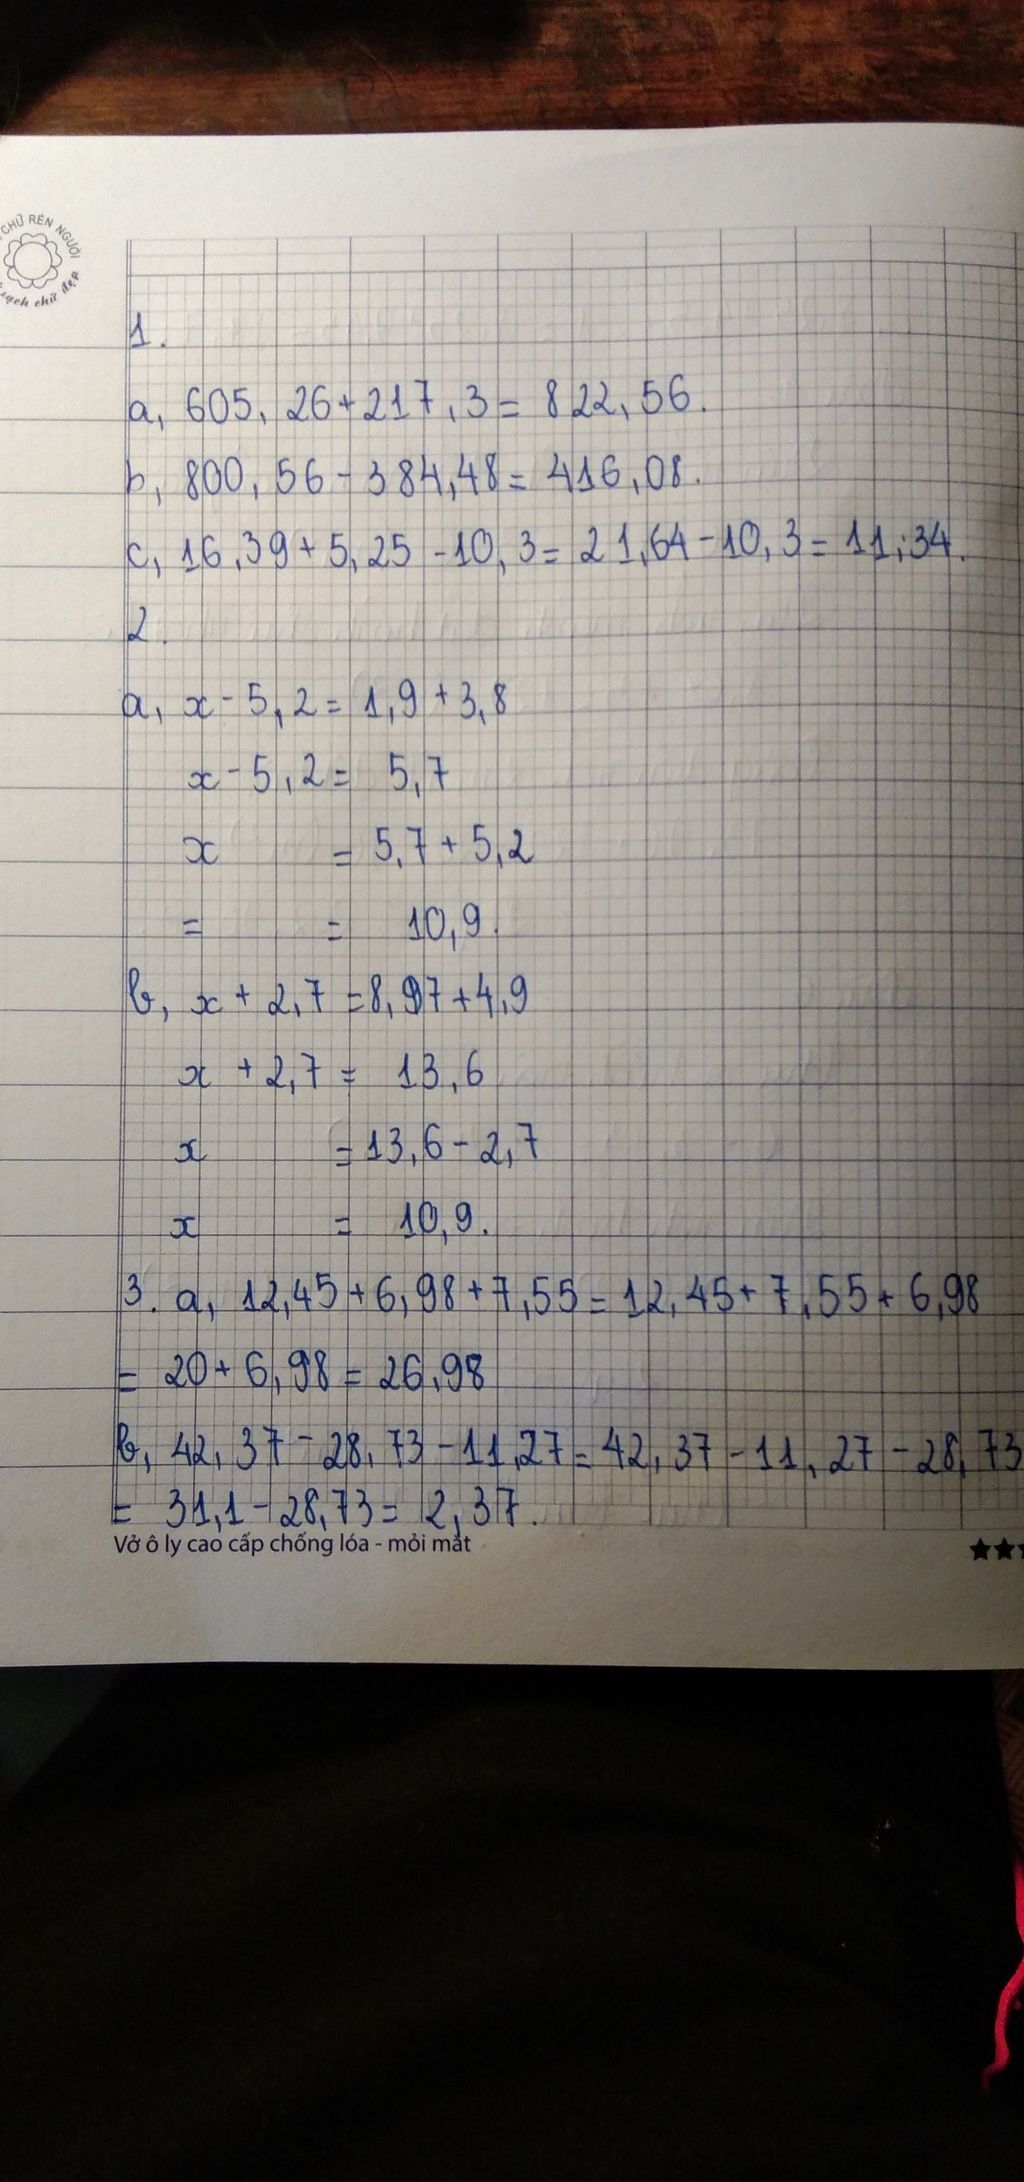 CHỮ RÈN NGƯỜI
sạch chữ đẹp
1.
a, 605, 26 + 217, 3 = 822, 56.
b, 800, 56 - 384, 48 = 416, 08.
c, 16, 39 + 5, 25 - 10, 3 = 21, 64 - 10, 3 = 11, 34.
2.
a, x - 5, 2 = 1, 9 + 3, 8
x - 5, 2 = 5, 7
x = 5, 7 + 5, 2
= = 10, 9.
b, x + 2, 7 = 8, 97 + 4, 9
x + 2, 7 = 13, 6
x = 13, 6 - 2, 7
x = 10, 9.
3. a, 12, 45 + 6, 98 + 7, 55 = 12, 45 + 7, 55 + 6, 98
= 20 + 6, 98 = 26, 98
b, 42, 37 - 28, 73 - 11, 27 = 42, 37 - 11, 27 - 28, 73
= 31, 1 - 28, 73 = 2, 37.
Vở ô ly cao cấp chống lóa - mỏi mắt